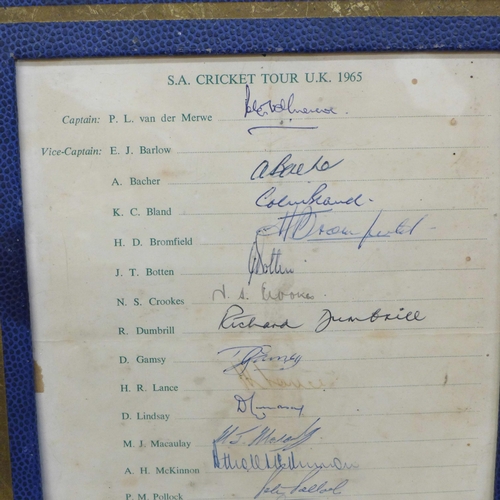 S.A. CRICKET TOUR U.K. 1965
Captain: P. L. van der Merwe
Vice-Captain: E. J. Barlow
A. Bacher A Bacher
K. C. Bland Colin Bland.
H. D. Bromfield
J. T. Botten J Botten
N. S. Crookes N. S. Crookes
R. Dumbrill Richard Dumbrill
D. Gamsy
H. R. Lance
D. Lindsay
M. J. Macaulay
A. H. McKinnon
P. M. Pollock Peter Pollock